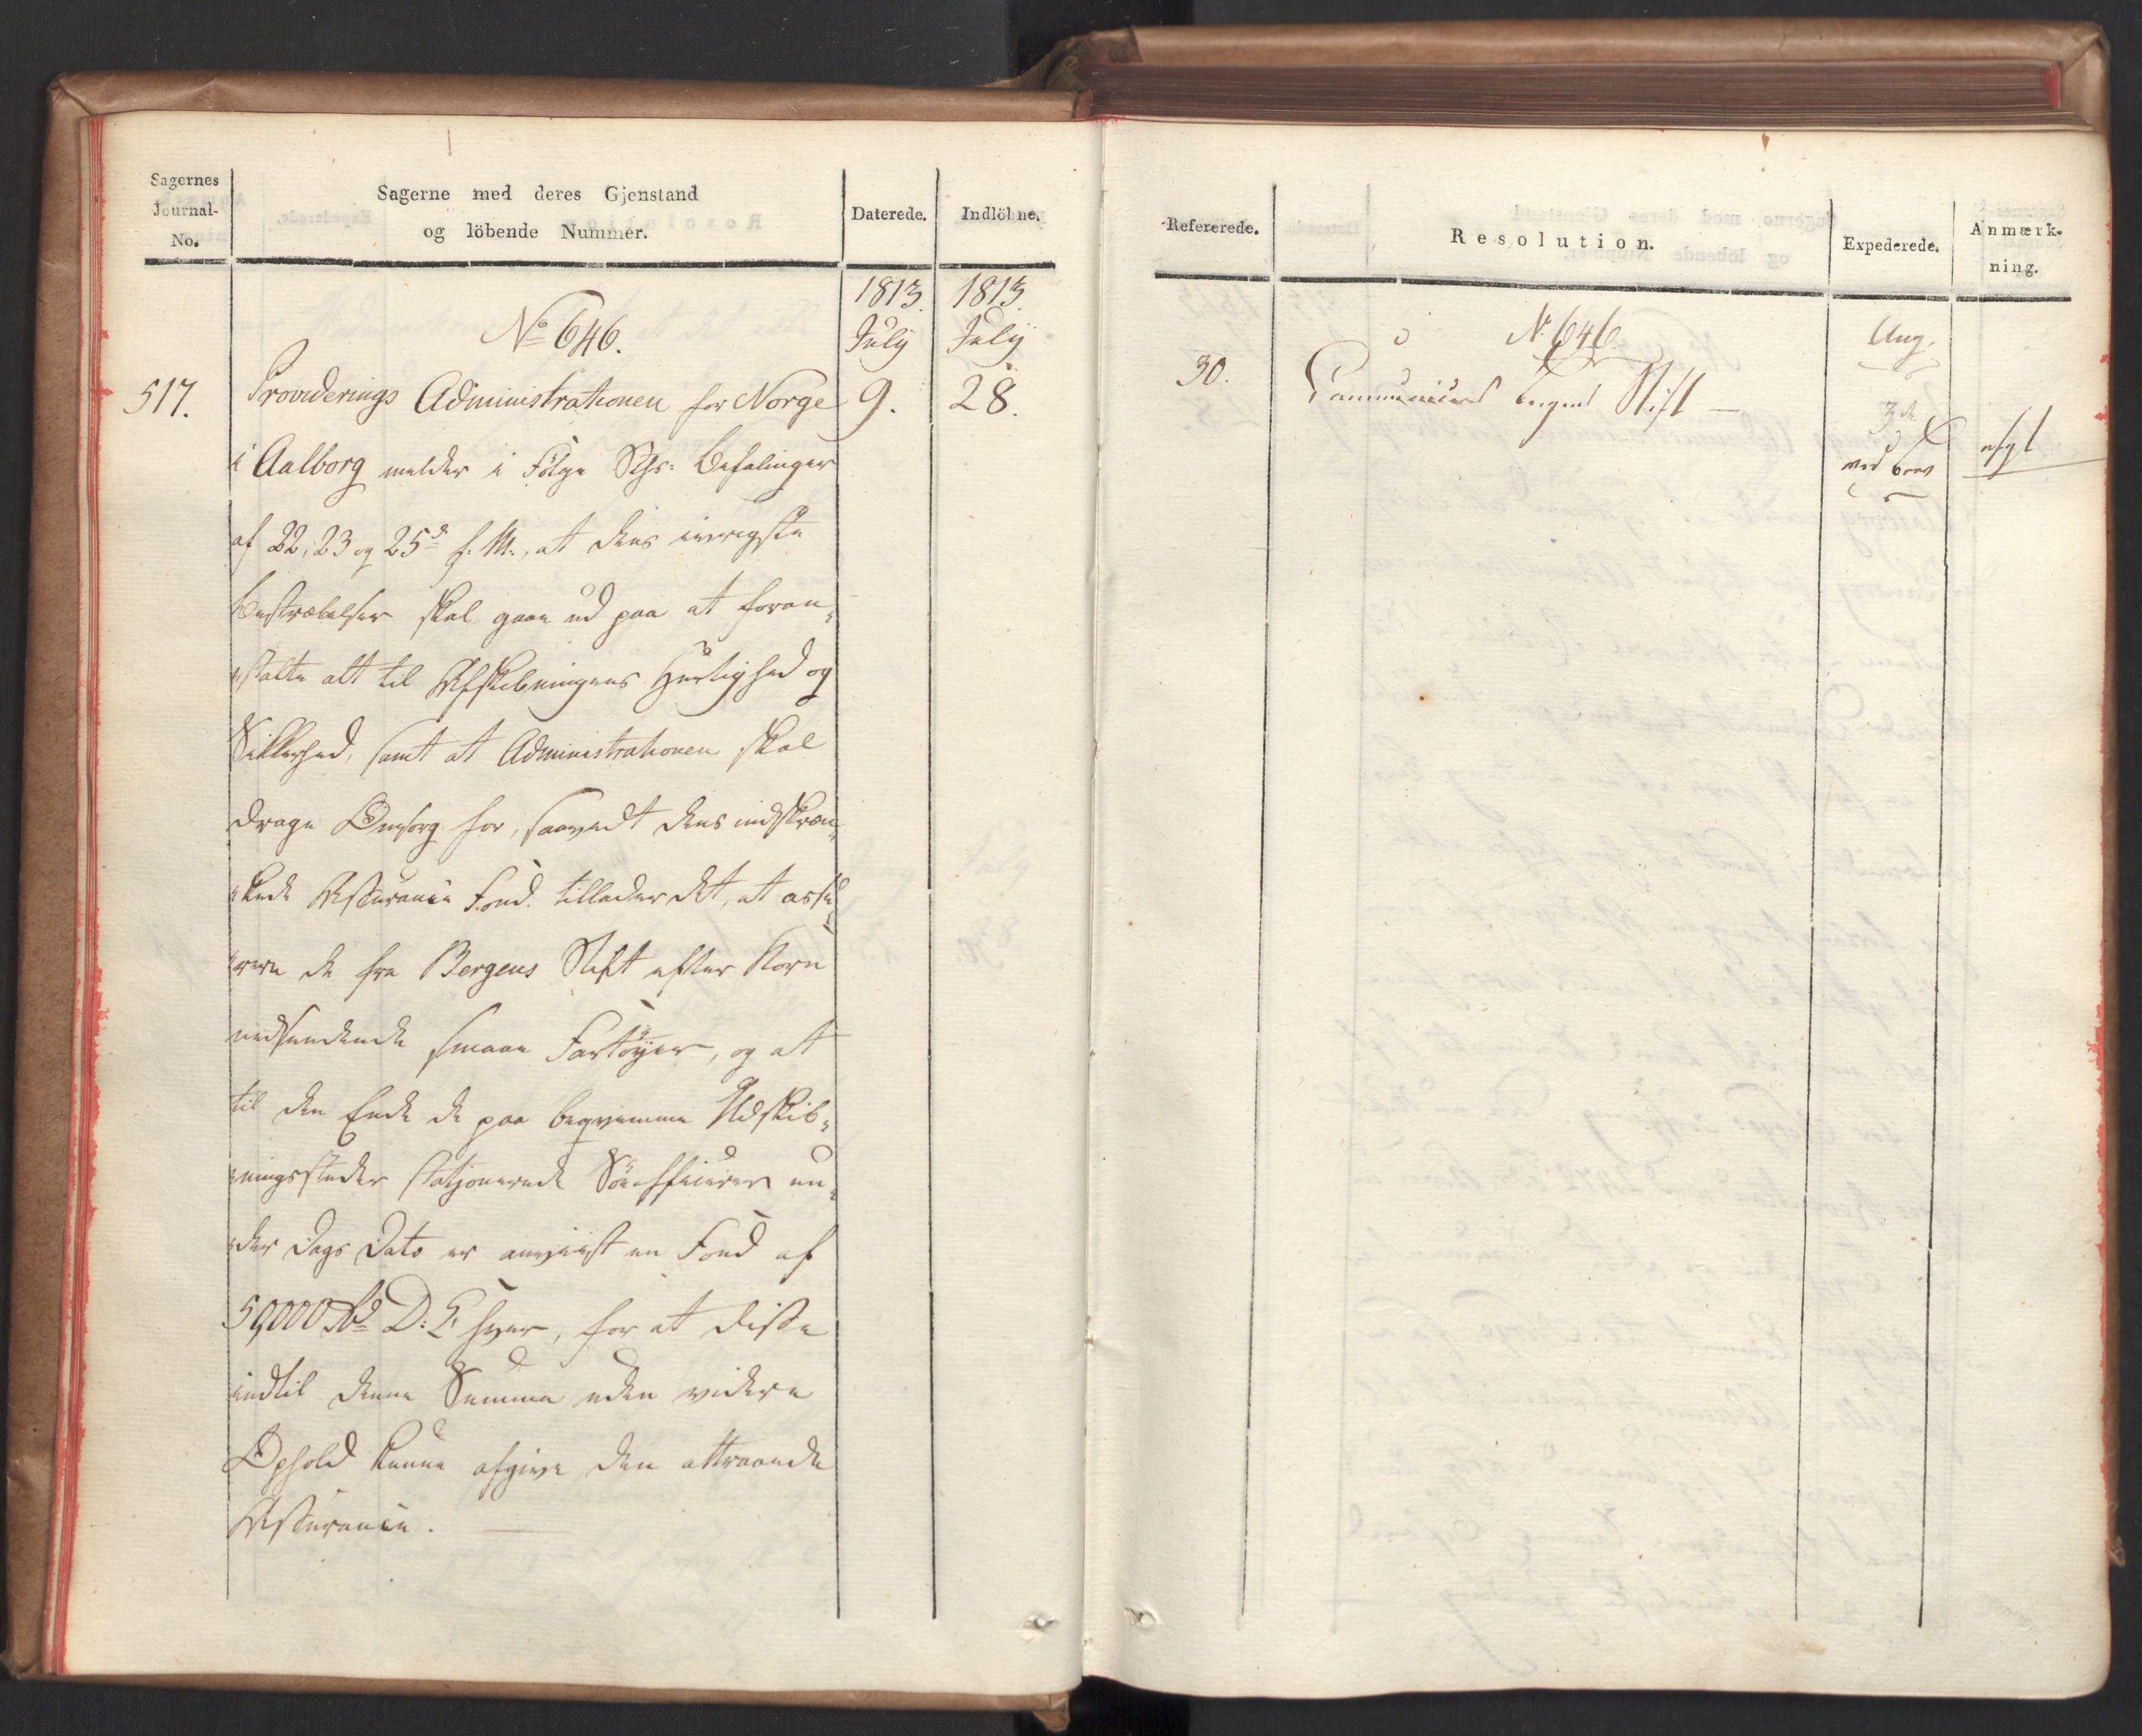 Sagernes
Journal-
No.
Sagerne med deres Gjenstand
og löbende Nummer.
Daterede.
Indlöbne.
1813.
July
1813
July
No 646.
517.
Provideerings Administrationen for Norge
9.
28.
i Aalborg melder i Følge Befalinger
af 22, 23 og 25de f. M., at dens ivrigste
Bestræbelser skal gaae ud paa at foran-
-stalte alt til Afskibningens Hurtighed og
Sikkerhed, samt at Administrationen skal
drage Omsorg for, saavidt dens indskræn-
-kede Assurance Fond tillader det, at assu-
-rere de fra Bergens Stift efter Korn
nedsendende smaae Fartöyer, og at
til den Ende de paa beqvemme Udskib-
-ningssteder stasjonerede Söeofficierer un-
-der Dags Dato er anviist en Fond af
50,000 Rbd D: C. hver, for at disse
indtil denne Summa uden videre
Ophold kunne afgive den attraaede
Assurance.
Refererede.
Resolution.
Expederede.
Anmærk-
ning.
No 646
Aug.
30.
Communiceres Bergens Stift
3de
ved Brev
afgl